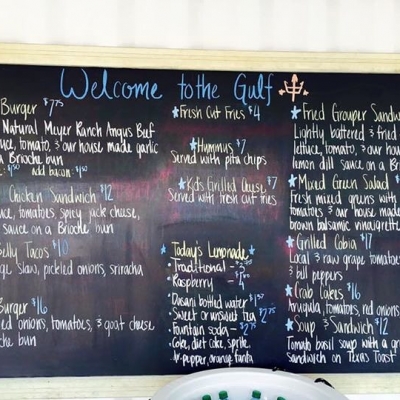 Welcome to the Gulf
Burger $7.75
Natural Meyer Ranch Angus Beef
tuce, tomato, & our house made garlic
a Brioche bun
add bacon
Chicken Sandwich $12
uce, tomatoes, spicy jack cheese,
sauce on a Brioche bun
Belly Tacos $10
slaw, pickled onions, sriracha
Burger $16
onions, tomatoes, & goat cheese
che bun
Fresh Cut Fries $4
Hummus $7
Served with pita chips
Kids Grilled Cheese $7
Served with fresh cut fries
Today's Lemonade
Traditional
Raspberry
Dasani bottled water
Sweet or unsweet tea
Fountain soda
Coke, diet coke, sprite,
dr. pepper, orange fanta
Fried Grouper Sandw
Lightly battered & fried
lettuce, tomato, & our hou
lemon dill sauce on a Br
Mixed Green Salad
Fresh mixed greens with
tomatoes & our house made
brown balsamic vinaigrette
Grilled Cobia $17
Local & raw grape tomatoe
& bell peppers
Crab Cakes $16
Arugula, tomatoes, red onions
Soup & Sandwich $12
Tomato basil soup with a gr
Sandwich on Texas Toast